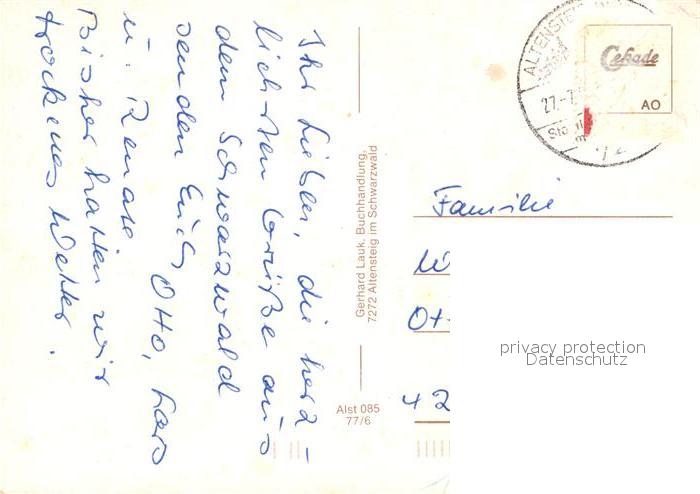 Ihr Lieben, die herz-
lichsten Grüße aus
dem Schwarzwald
senden Euch Otto, Lars
u. Renate
Bisher hatten wir
trockenes Wetter.
Gerhard Lauk, Buchhandlung,
7272 Altensteig im Schwarzwald
Alst 085
77/6
ALTENSTEIG
27.-7.
Cekade
AO
Familie
W
Ot
42
privacy protection
Datenschutz